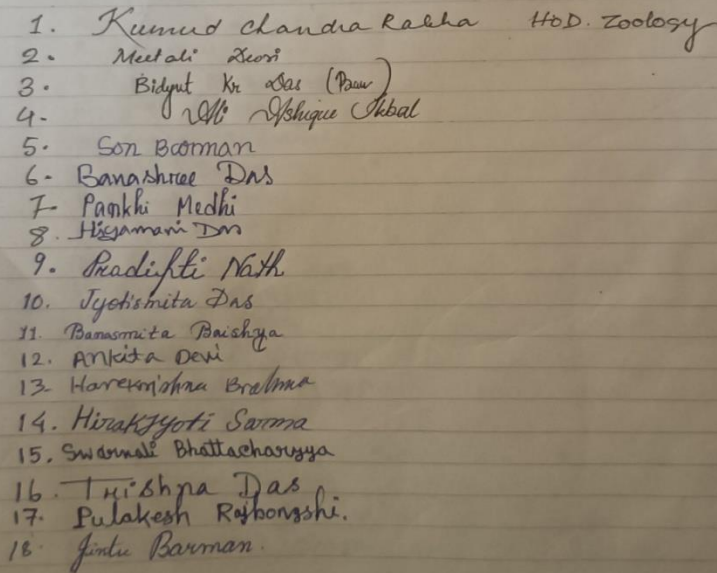 1. Kumud Chandra Rabha HOD. Zoology
2. Meetali Deori
3. Bidyut Kr Das
4. Ali Ashique Ikbal
5. Son Boorman
6. Banashree Das
7. Pankhi Medhi
8. Hiyamani Das
9. Pradipti Nath
10. Jyotismita Das
11. Banasmita Baishya
12. Ankita Devi
13. Harekrishna Brahma
14. Hirakjyoti Sarma
15. Swarnali Bhattacharyya
16. Trishna Das
17. Pulakesh Rajbongshi.
18. Jintu Barman.